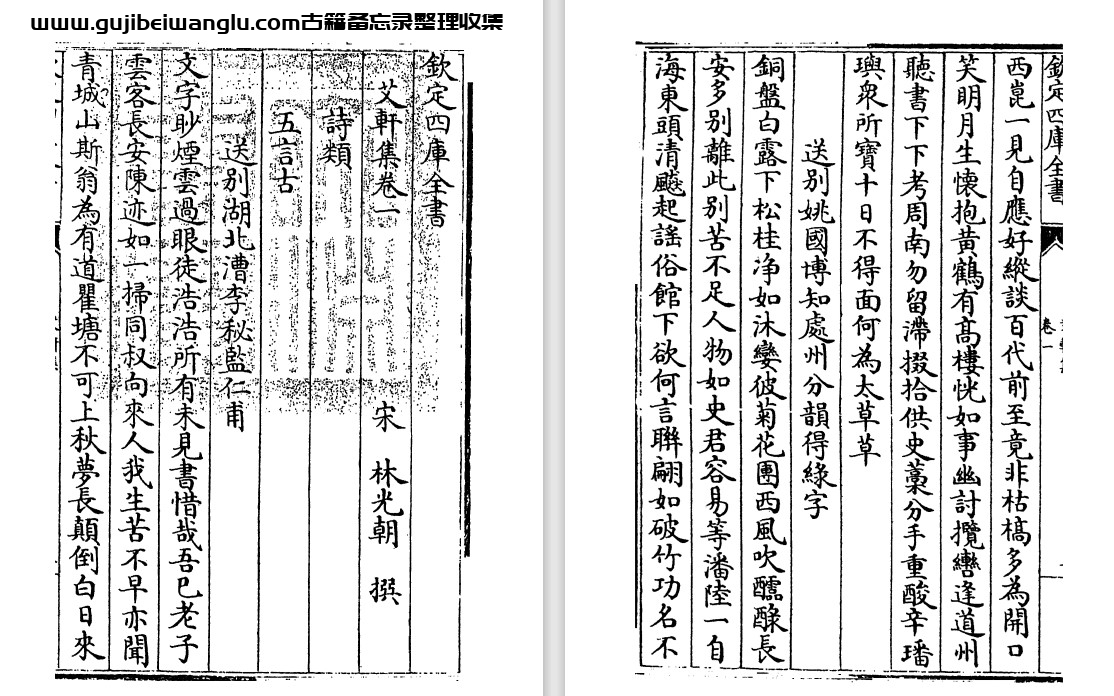 www.gujibeiwanglu.com古籍备忘录整理收集
欽定四庫全書
艾軒集卷一 宋 林光朝 撰
詩類
五言古
送別湖北漕李秘監仁甫
文字眇煙雲過眼徒浩浩所有未見書惜哉吾已老子
雲客長安陳迹如一掃同叔向來人我生苦不早亦聞
青城山斯翁為有道瞿塘不可上秋夢長顛倒白日來
欽定四庫全書
卷一
西崑一見自應好縱談百代前至竟非枯槁多為開口
笑明月生懷抱黃鶴有高樓恍如事幽討攬轡逢道州
聽書下下考周南勿留滯掇拾供史藁分手重酸辛璠
璵衆所寶十日不得面何為太草草
送別姚國博知處州分韻得緑字
銅盤白露下松桂净如沐孌彼菊花團西風吹醽醁長
安多別離此別苦不足人物如史君容易等潘陸一自
海東頭清飈起謡俗館下欲何言聯翩如破竹功名不